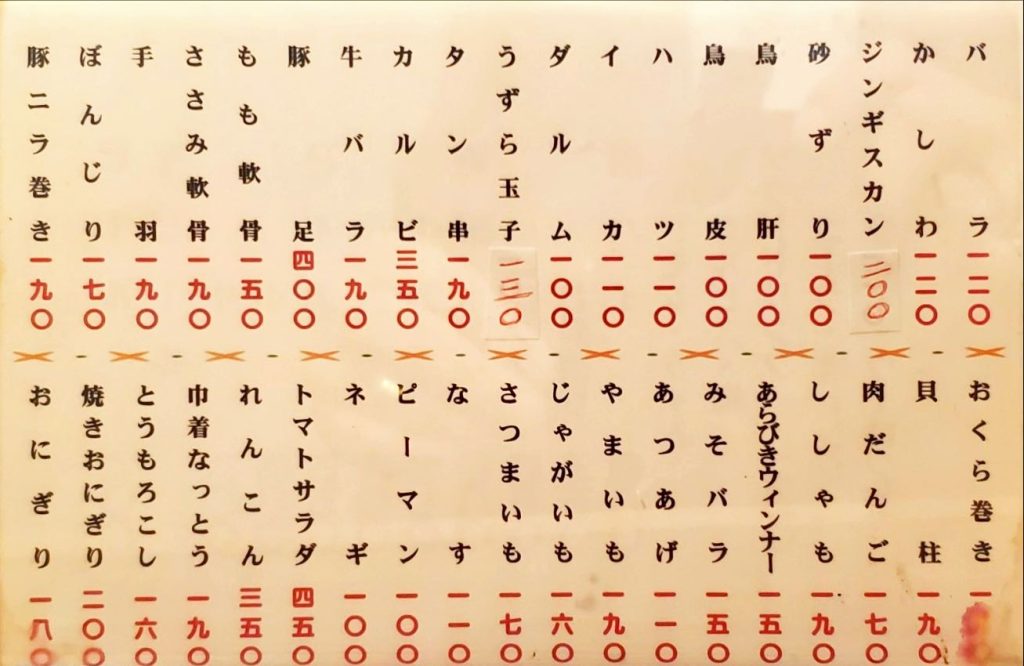 バラ 一二〇
かしわ 一二〇
ジンギスカン 二〇〇
砂ずり 一〇〇
鳥肝 一〇〇
鳥皮 一〇〇
ハツ 一一〇
イカ 一一〇
ダルム 一〇〇
うずら玉子 一三〇
タン串 一九〇
カルビ 三五〇
牛バラ 一九〇
豚足 四〇〇
もも軟骨 一五〇
ささみ軟骨 一九〇
手羽 一九〇
ぼんじり 一七〇
豚ニラ巻き 一九〇
おくら巻き 一
貝柱 一九〇
肉だんご 一七〇
ししゃも 一九〇
あらびきウィンナー 一五〇
みそバラ 一五〇
あつあげ 一一〇
やまいも 一九〇
じゃがいも 一六〇
さつまいも 一七〇
なす 一一〇
ピーマン 一〇〇
ネギ 一〇〇
トマトサラダ 四五〇
れんこん 三五〇
巾着なっとう 一九〇
とうもろこし 一六〇
焼きおにぎり 二〇〇
おにぎり 一八〇